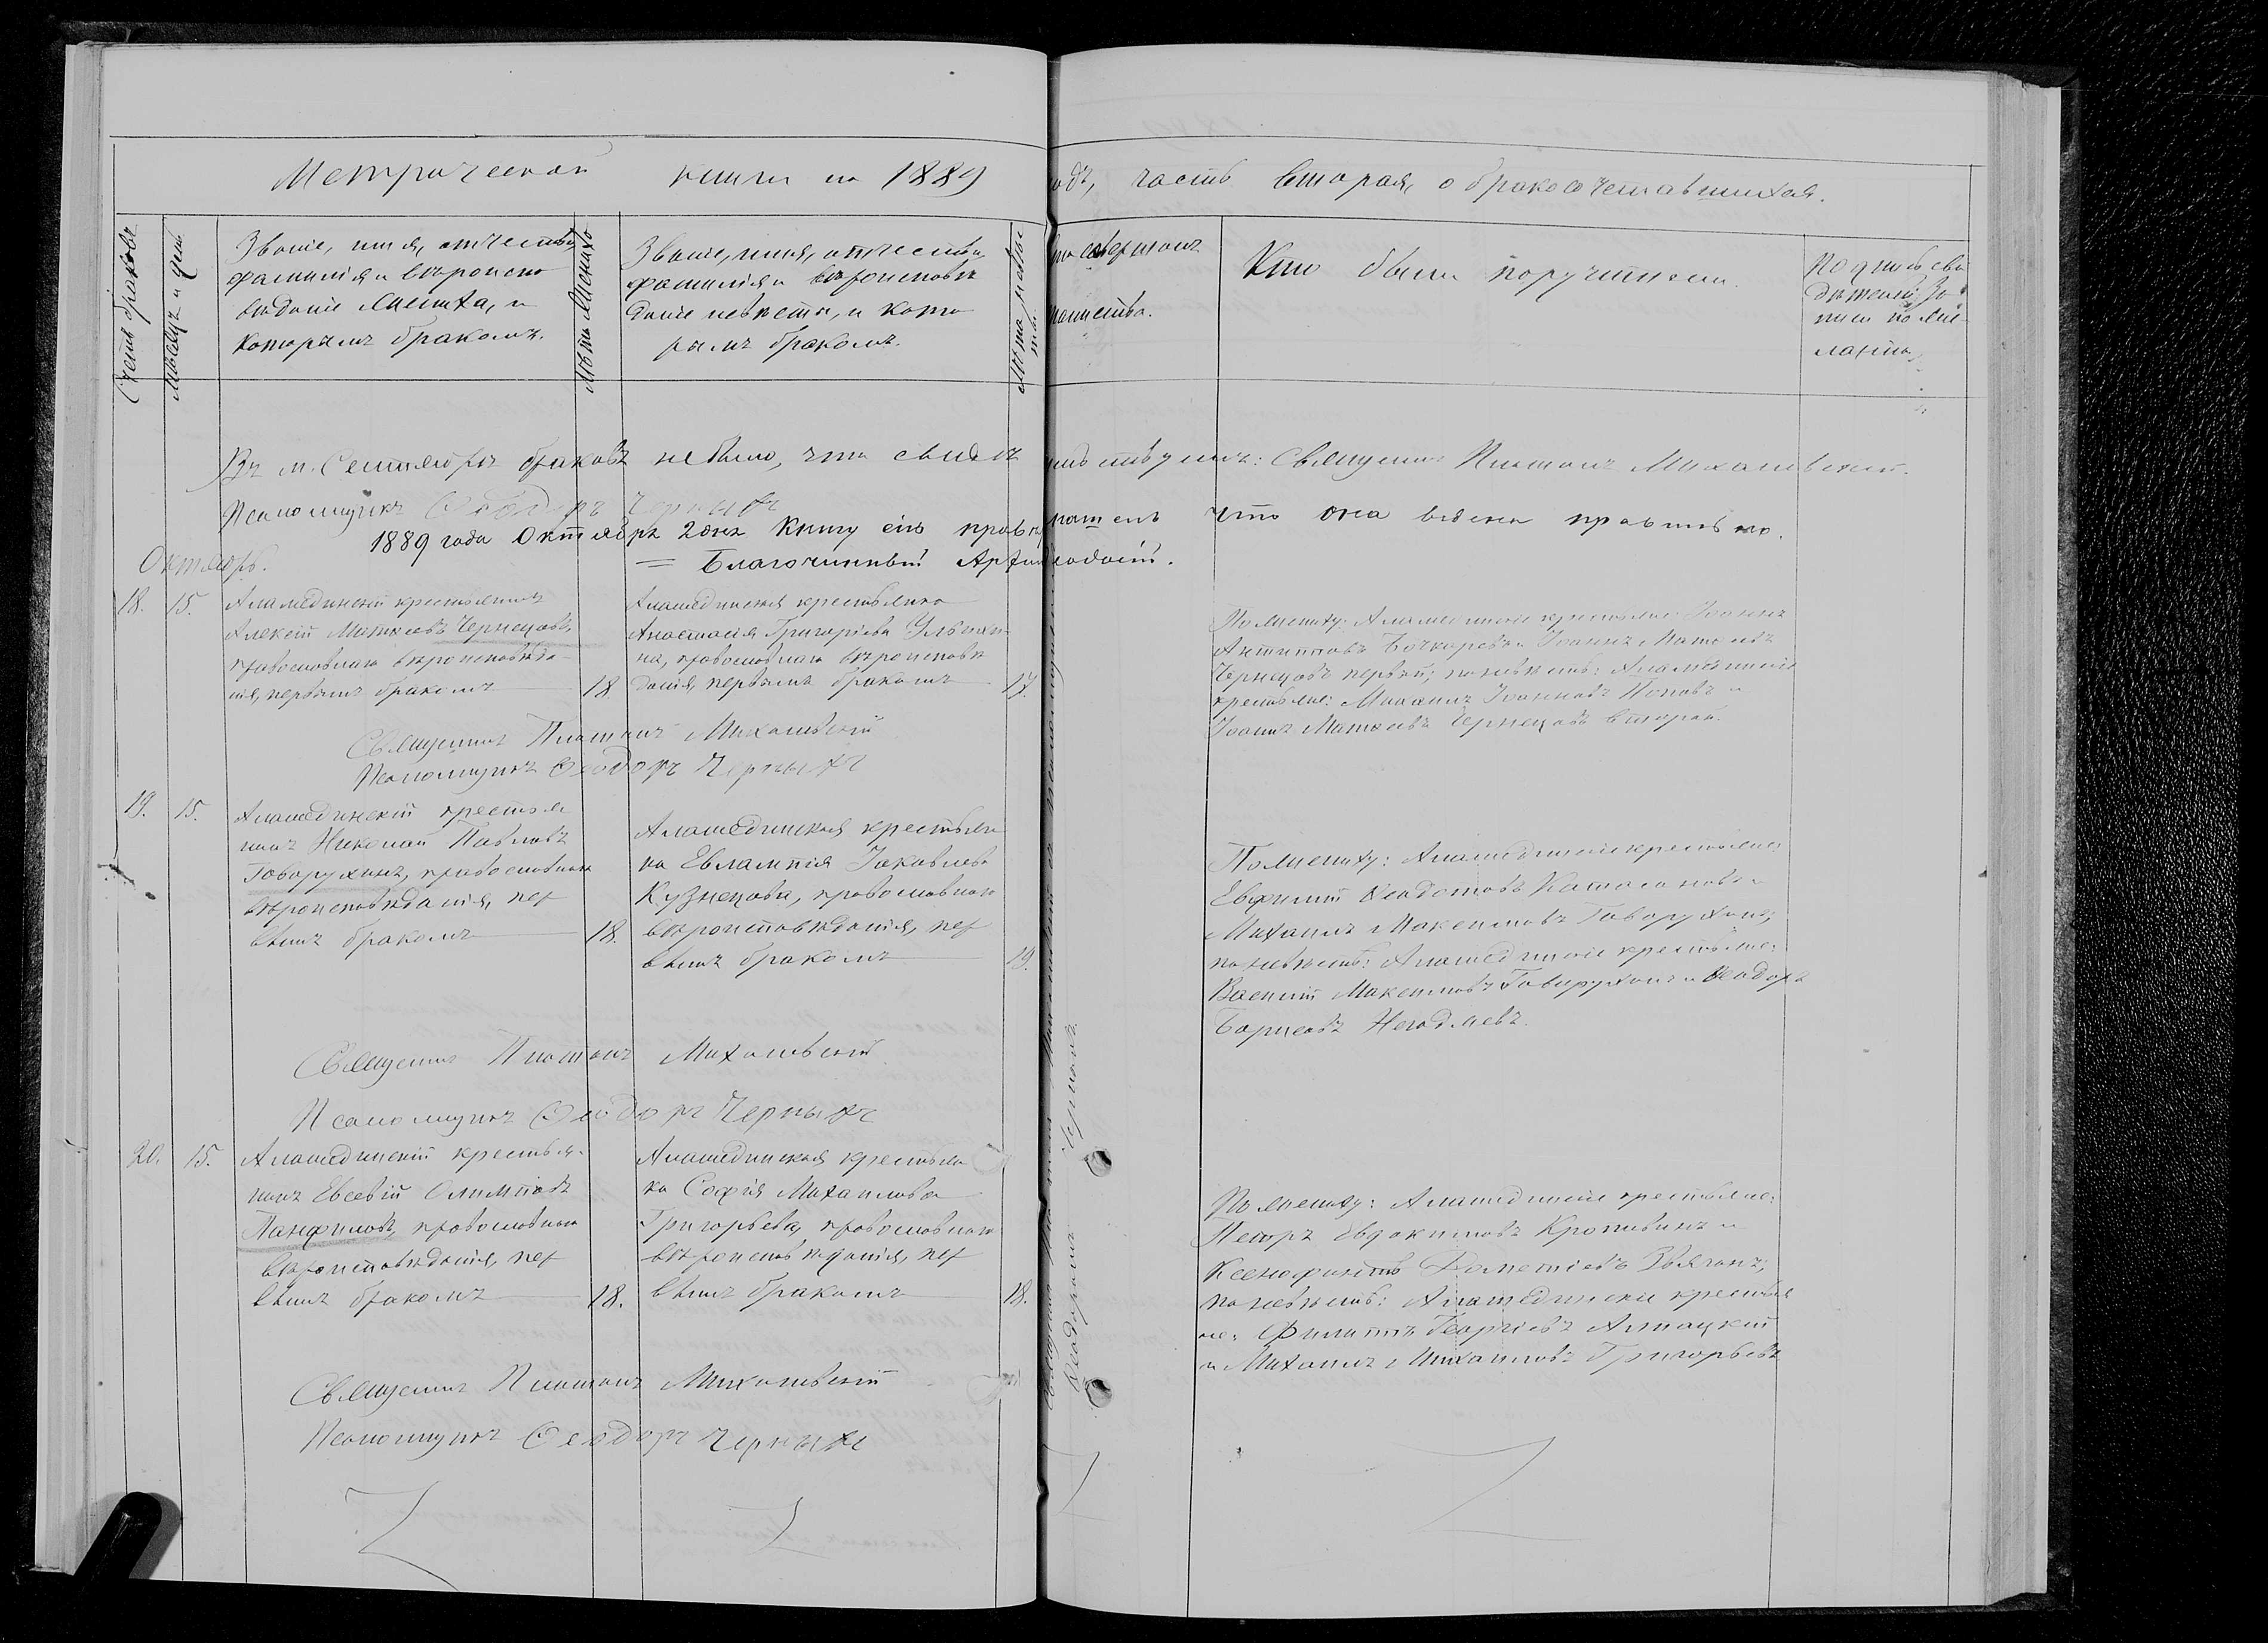 Метрической книги на 1889 годъ, часть вторая, о бракосочетавшихся.
Счетъ браковъ
Мѣсяцъ и день
Званіе, имя, отчество,
фамилія и вѣроиспо
вѣданіе жениха, и
которымъ бракомъ.
Лѣта жениха
Званіе, имя, отчество,
фамилія и вѣроисповѣ
даніе невѣсты, и кото
рымъ бракомъ.
Лѣта невѣс
ты
совершалъ
таинство.
Кто были поручители.
Подпись сви
дѣтелей за
писи по же
ланію
Въ м. Сентябрѣ браковъ не было, что свидѣтельствуемъ: Священникъ Платонъ Михалевскій.
Псаломщикъ Ѳеодоръ Черныхъ
1889 года Октября 2 дня книгу сію провѣрялъ что она ведена правильно.
= Благочинный
Октябрь.
18. 15.
Аламединскій крестьянинъ
Алексѣй Матѳеевъ Чернецовъ,
православнаго вѣроисповѣда
нія, первымъ бракомъ 18.
Аламединская крестьянка
Анастасія Григорьева Ульян
на, православнаго вѣроисповѣ
данія, первымъ бракомъ 17.
По жениху: Аламединскіе крестьяне: Іоаннъ
Антиповъ Бочкаревъ и Іоаннъ Матѳеевъ
Чернецовъ первый; по невѣстѣ: Аламединскіе
крестьяне: Михаилъ Іоанновъ Поповъ и
Іоаннъ Матѳеевъ Чернецовъ второй.
Священникъ Платонъ Михалевскій
Псаломщикъ Ѳеодоръ Черныхъ
19. 15.
Аламединскій крестья
нинъ Николай Павловъ
Говорухинъ, православнаго
вѣроисповѣданія, пер
вымъ бракомъ 18.
Аламединская крестьян
ка Евлампія Іаковлева
Кузнецова, православнаго
вѣроисповѣданія, пер
вымъ бракомъ 19.
По жениху: Аламединскіе крестьяне:
Евфимій Ѳеодотовъ
Михаилъ Максимовъ Говорухинъ;
по невѣстѣ: Аламединскіе крестьяне:
Василій Максимовъ Говорухинъ и Ѳеодоръ
Борисовъ Негодяевъ.
Священникъ Платонъ Михалевскій
Псаломщикъ Ѳеодоръ Черныхъ
20. 15.
Аламединскій крестья-
нинъ Евсевій Олимпіевъ
Панфиловъ, православнаго
вѣроисповѣданія, пер
вымъ бракомъ 18.
Аламединская крестьян
ка Софія Михаилова
Григорьева, православнаго
вѣроисповѣданія, пер
вымъ бракомъ 18.
По жениху: Аламединскіе крестьяне:
Петръ Евдокимовъ Кропивинъ и
Ксенофонтъ Дометіевъ
по невѣстѣ: Аламединскіе крестья
не: Филиппъ Георгіевъ
и Михаилъ Михаиловъ Григорьевъ
Священникъ Платонъ Михалевскій
Псаломщикъ Ѳеодоръ Черныхъ